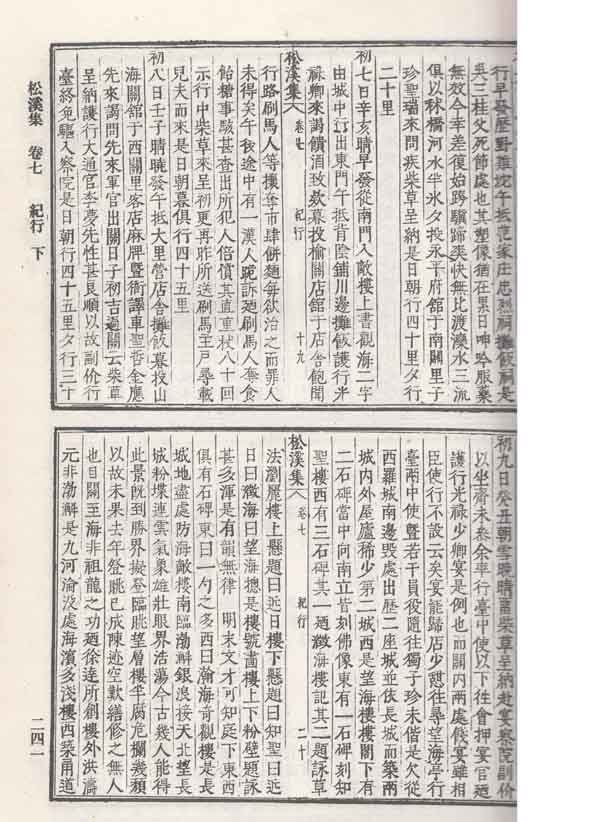 行早發歷野雞坨午抵范家庄忠烈祠攤飯祠是
吳三桂父死節處也其塑像猶在累日呻吟服藥
無效今幸差復始跨驥蹄爽快無比渡灤水三流
俱以秫橋河水半氷夕投永平府舘于南關里子
珍聖瑞來問疾柴草呈納是日朝行四十里夕行
二十里
初七日辛亥晴早發從南門入敵樓上書觀海二字
由城中行出東門午抵背陰鋪川邊攤飯護行光
祿卿來謁饋酒致欸暮投榆關店舘于店舍飽聞
松溪集 卷七 紀行 十九
行路刷馬人等攘奪市肆餅麵每欲治之而罪人
未得矣午後途中有一漢人跪訴廼刷馬人奪食
飴糖事駭甚查出所犯人倍償其直重狀八十回
示行中柴草來呈初更再昨所送刷馬主戶尋載
兒夫而來是日朝暮俱行四十五里
初八日壬子晴曉發午抵大里營店舍攤飯暮投山
海關舘于西關里客店麻牌曁衙譯車聖哲金應
先來謁問先來軍官出關日子初吉過關云柴草
呈納護行大通官李慶先性甚良順以故副价行
臺終免驅入察院是日朝行四十五里夕行三十
初九日癸丑朝雪晚晴畱柴草呈納赴宴察院副价
以坐齋未參余率行臺中使以下往會押宴官廼
護行光祿少卿宴是例也而關内兩處俵宴雖相
臣使行不設云矣宴罷歸店少憇往尋望海亭行
臺兩中使曁若干員役隨往獨子珍未偕是欠從
西羅城南邊毀處出歷二座城並依長城而築兩
城内外屋廬稀少第二城西是望海樓樓閣下有
二石碑當中向南立皆刻佛像東有一石碑刻知
聖樓西有三石碑其一廼澂海樓記其二題詠草
松溪集 卷七 紀行 二十
法瀏麗樓上懸題曰近日樓下懸題曰知聖曰近
日曰澂海曰望海摠是樓號畵樓上下粉壁題詠
甚多渾是有韻無律 明末文才可知庭下東西
俱有石碑東曰一勺之多西曰瀚海奇觀樓是長
城地盡處防海敵樓南臨渤解銀浪接天北望長
城粉堞連雲氣象雄壯眼界浩蕩今古幾人能得
此景旣到勝界擬登臨眺望層樓半腐危欄幾頹
以故未果去年登眺已成陳迹空歎繕修之無人
也自關至海非祖龍之功廼徐達所創樓外洪濤
元非渤解是九河淪沒處海濱多淺樓西築甬道
松溪集 卷七 紀行 下
二四一